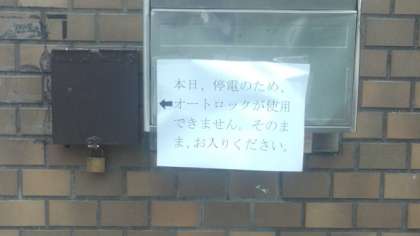 本日、停電のため、
オートロックが使用
できません。そのま
ま、お入りください。